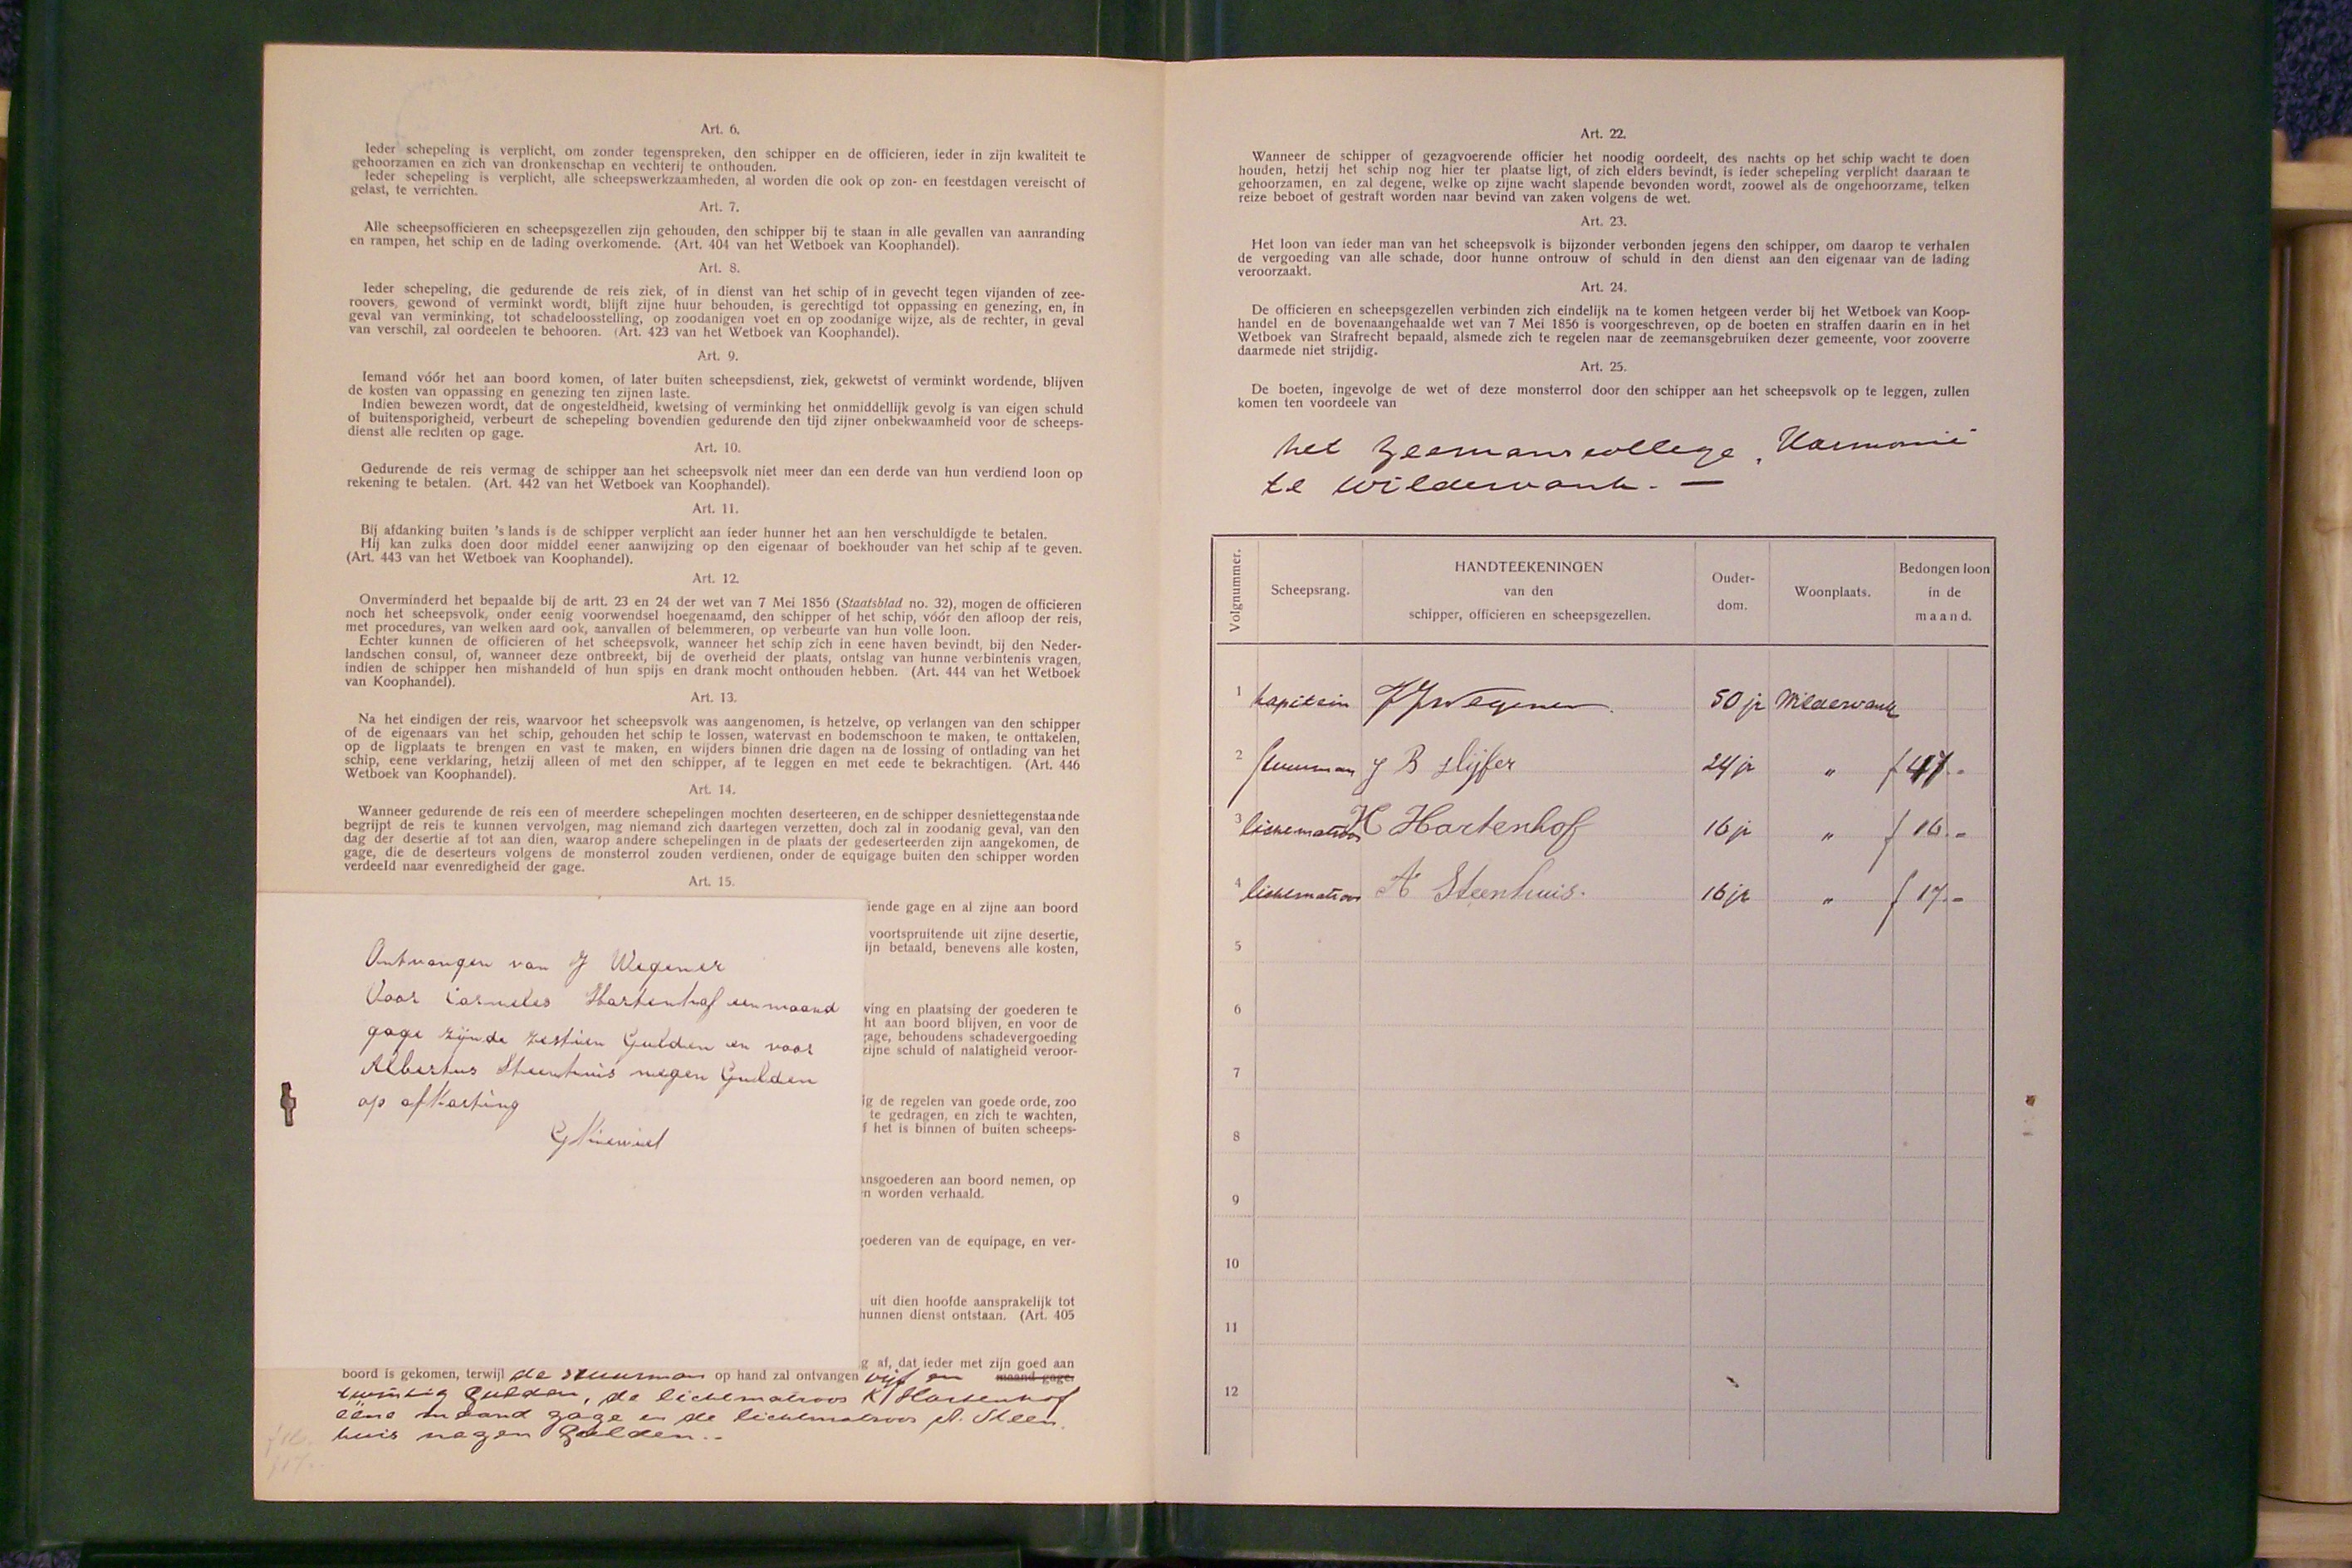 Art. 6.
Ieder schepeling is verplicht, om zonder tegenspreken, den schipper en de officieren, ieder in zijn kwaliteit te
gehoorzamen en zich van dronkenschap en vechterij te onthouden.
Ieder schepeling is verplicht, alle scheepswerkzaamheden, al worden die ook op zon- en feestdagen vereischt of
gelast, te verrichten.
Art. 7.
Alle scheepsofficieren en scheepsgezellen zijn gehouden, den schipper bij te staan in alle gevallen van aanranding
en rampen, het schip en de lading overkomende. (Art. 404 van het Wetboek van Koophandel).
Art. 8.
Ieder schepeling, die gedurende de reis ziek, of in dienst van het schip of in gevecht tegen vijanden of zee-
roovers, gewond of verminkt wordt, blijft zijne huur behouden, is gerechtigd tot oppassing en genezing, en, in
geval van verminking, tot schadeloosstelling, op zoodanigen voet en op zoodanige wijze, als de rechter, in geval
van verschil, zal oordeelen te behooren. (Art. 423 van het Wetboek van Koophandel).
Art. 9.
Iemand vóór het aan boord komen, of later buiten scheepsdienst, ziek, gekwetst of verminkt wordende, blijven
de kosten van oppassing en genezing ten zijnen laste.
Indien bewezen wordt, dat de ongesteldheid, kwetsing of verminking het onmiddellijk gevolg is van eigen schuld
of buitensporigheid, verbeurt de schepeling bovendien gedurende den tijd zijner onbekwaamheid voor de scheeps-
dienst alle rechten op gage.
Art. 10.
Gedurende de reis vermag de schipper aan het scheepsvolk niet meer dan een derde van hun verdiend loon op
rekening te betalen. (Art. 442 van het Wetboek van Koophandel).
Art. 11.
Bij afdanking buiten 's lands is de schipper verplicht aan ieder hunner het aan hen verschuldigde te betalen.
Hij kan zulks doen door middel eener aanwijzing op den eigenaar of boekhouder van het schip af te geven.
(Art. 443 van het Wetboek van Koophandel).
Art. 12.
Onverminderd het bepaalde bij de artt. 23 en 24 der wet van 7 Mei 1856 (Staatsblad no. 32), mogen de officieren
noch het scheepsvolk, onder eenig voorwendsel hoegenaamd, den schipper of het schip, vóór den afloop der reis,
met procedures, van welken aard ook, aanvallen of belemmeren, op verbeurte van hun volle loon.
Echter kunnen de officieren of het scheepsvolk, wanneer het schip zich in eene haven bevindt, bij den Neder-
landschen consul, of, wanneer deze ontbreekt, bij de overheid der plaats, ontslag van hunne verbintenis vragen,
indien de schipper hen mishandeld of hun spijs en drank mocht onthouden hebben. (Art. 444 van het Wetboek
van Koophandel).
Art. 13.
Na het eindigen der reis, waarvoor het scheepsvolk was aangenomen, is hetzelve, op verlangen van den schipper
of de eigenaars van het schip, gehouden het schip te lossen, watervast en bodemschoon te maken, te onttakelen,
op de ligplaats te brengen en vast te maken, en wijders binnen drie dagen na de lossing of ontlading van het
schip, eene verklaring, hetzij alleen of met den schipper, af te leggen en met eede te bekrachtigen. (Art. 446
Wetboek van Koophandel).
Art. 14.
Wanneer gedurende de reis een of meerdere schepelingen mochten deserteeren, en de schipper desniettegenstaande
begrijpt de reis te kunnen vervolgen, mag niemand zich daartegen verzetten, doch zal in zoodanig geval, van den
dag der desertie af tot aan dien, waarop andere schepelingen in de plaats der gedeserteerden zijn aangekomen, de
gage, die de deserteurs volgens de monsterrol zouden verdienen, onder de equigage buiten den schipper worden
verdeeld naar evenredigheid der gage.
Art. 15.
iende gage en al zijne aan boord
voortspruitende uit zijne desertie,
ijn betaald, benevens alle kosten,
ving en plaatsing der goederen te
ht aan boord blijven, en voor de
gage, behoudens schadevergoeding
zijne schuld of nalatigheid veroor-
ig de regelen van goede orde, zoo
te gedragen, en zich te wachten,
f het is binnen of buiten scheeps-
ansgoederen aan boord nemen, op
n worden verhaald.
goederen van de equipage, en ver-
uit dien hoofde aansprakelijk tot
hunnen dienst ontstaan. (Art. 405
g af, dat ieder met zijn goed aan
boord is gekomen, terwijl de stuurman op hand zal ontvangen vijf en maand gage.
twintig gulden, de lichtmatroos K Hartenhof
eene maand gage en de lichtmatroos A. Steen
huis negen Gulden.-
Ontvangen van J Wegener
Voor Cornelis Hartenhof een maand
gage zijnde zestien Gulden en voor
Albertus Steenhuis negen Gulden
op afkorting
Art. 22.
Wanneer de schipper of gezagvoerende officier het noodig oordeelt, des nachts op het schip wacht te doen
houden, hetzij het schip nog hier ter plaatse ligt, of zich elders bevindt, is ieder schepeling verplicht daaraan te
gehoorzamen, en zal degene, welke op zijne wacht slapende bevonden wordt, zoowel als de ongehoorzame, telken
reize beboet of gestraft worden naar bevind van zaken volgens de wet.
Art. 23.
Het loon van ieder man van het scheepsvolk is bijzonder verbonden jegens den schipper, om daarop te verhalen
de vergoeding van alle schade, door hunne ontrouw of schuld in den dienst aan den eigenaar van de lading
veroorzaakt.
Art. 24.
De officieren en scheepsgezellen verbinden zich eindelijk na te komen hetgeen verder bij het Wetboek van Koop-
handel en de bovenaangehaalde wet van 7 Mei 1856 is voorgeschreven, op de boeten en straffen daarin en in het
Wetboek van Strafrecht bepaald, alsmede zich te regelen naar de zeemansgebruiken dezer gemeente, voor zooverre
daarmede niet strijdig.
Art. 25.
De boeten, ingevolge de wet of deze monsterrol door den schipper aan het scheepsvolk op te leggen, zullen
komen ten voordeele van
het Zeemanscollege „Harmonie
te Wildervank. —
Volgnummer. Scheepsrang. HANDTEEKENINGEN van den schipper, officieren en scheepsgezellen. Ouder-dom. Woonplaats. Bedongen loon in de maand.
1 kapitein JJ Wegener. 50 jr Wildervank
2 stuurman J B Slijfer 24 jr „ f 47.-
3 lichtmatroos K Hartenhof 16 jr „ f 16.-
4 lichtmatroos A Steenhuis. 16 jr „ f 17.-
5
6
7
8
9
10
11
12